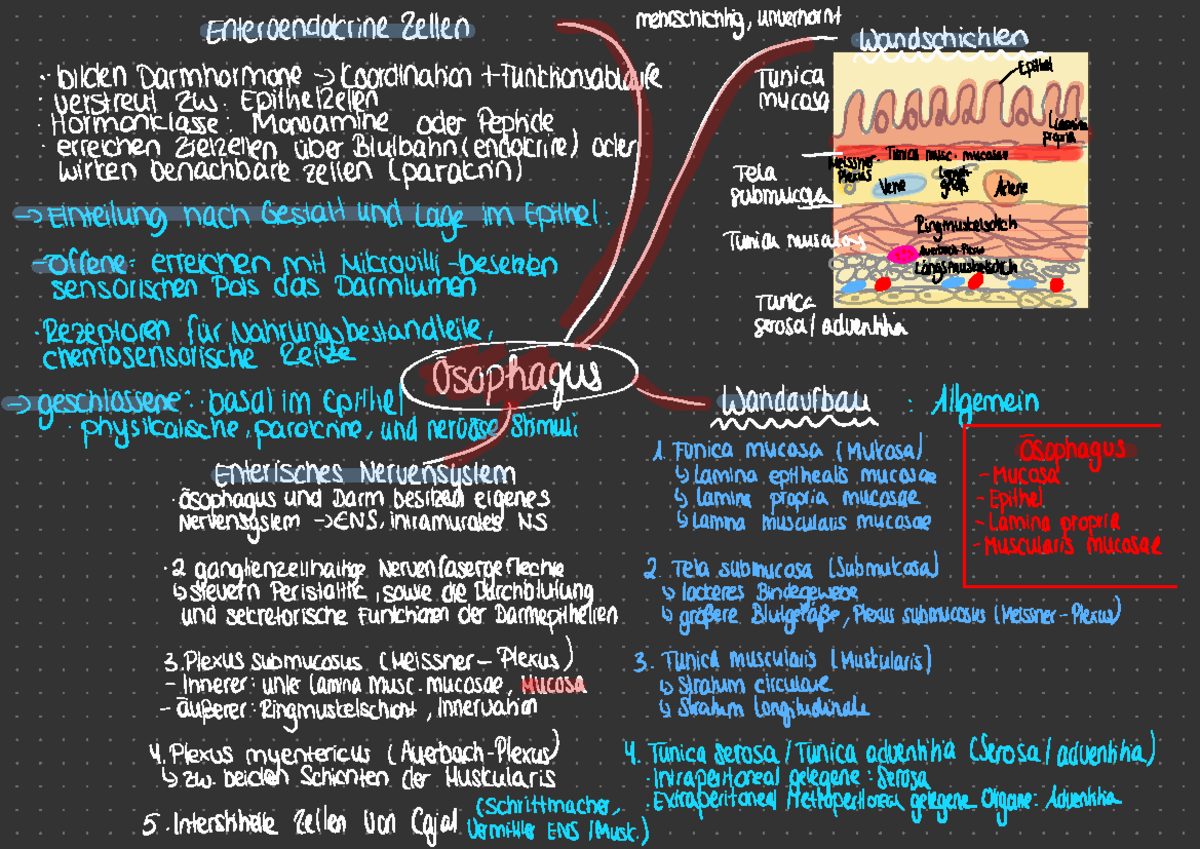 Enteroendokrine Zellen
· bilden Darmhormone → Coordination + Funktionsabläufe
· verstreut zw. Epithelzellen
· Hormonklasse: Monoamine oder Peptide
· erreichen Zielzellen über Blutbahn (endokrine) oder
wirken benachbarte Zellen (parakrin)
→ Einteilung nach Gestalt und Lage im Epithel:
- offene: erreichen mit Mikrovilli-besetzten
sensorischen Pols das Darmlumen
· Rezeptoren für Nahrungsbestandteile,
chemosensorische Reize
→ geschlossene: basal im Epithel
· physikalische, parakrine, und nervöse Stimuli
mehrschichtig, unverhornt
Wandschichten
Tunica
mucosa
Epithel
Lamina
propria
Tunica musc. mucosae
Tela
submucosa
Meissner-
Plexus
Vene
Lymph-
gefäß
Arterie
Tunica muscularis
Ringmuskelschich
Auerbach-Plexus
Längsmuskelschich
Tunica
serosa/adventitia
Ösophagus
Enterisches Nervensystem
· Ösophagus und Darm besitzen eigenes
Nervensystem → ENS, intramurales NS
· 2 ganglienzellhaltige Nervenfasergeflechte
↳ steuern Peristaltik, sowie die Durchblutung
und secretorische Funktionen der Darmepithelien
3. Plexus submucosus (Meissner-Plexus)
- Innerer: unter Lamina Musc. mucosae, Mucosa
- äußerer: Ringmuskelschicht, Innervation
4. Plexus myentericus (Auerbach-Plexus)
↳ zw. beiden Schichten der Muskularis
5. Interstitielle Zellen von Cajal (Schrittmacher,
Vermittler ENS/Musk.)
Wandaufbau : Allgemein
1. Tunica mucosa (Mukosa)
↳ Lamina epithealis mucosae
↳ lamina propria mucosae
↳ Lamina muscularis mucosae
2. Tela submucosa (Submukosa)
↳ lockeres Bindegewebe
↳ größere Blutgefäße, Plexus submucosus (Meissner-Plexus)
3. Tunica muscularis (Muskularis)
↳ Stratum circulare
↳ Stratum longitudinale
4. Tunica serosa / Tunica adventitia (Serosa/adventitia)
· Intraperitoneal gelegene: Serosa
· Extraperitoneal / retroperitoneal gelegene Organe: Adventitia
Ösophagus
- Mucosa
- Epithel
- Lamina propria
- Muscularis mucosae